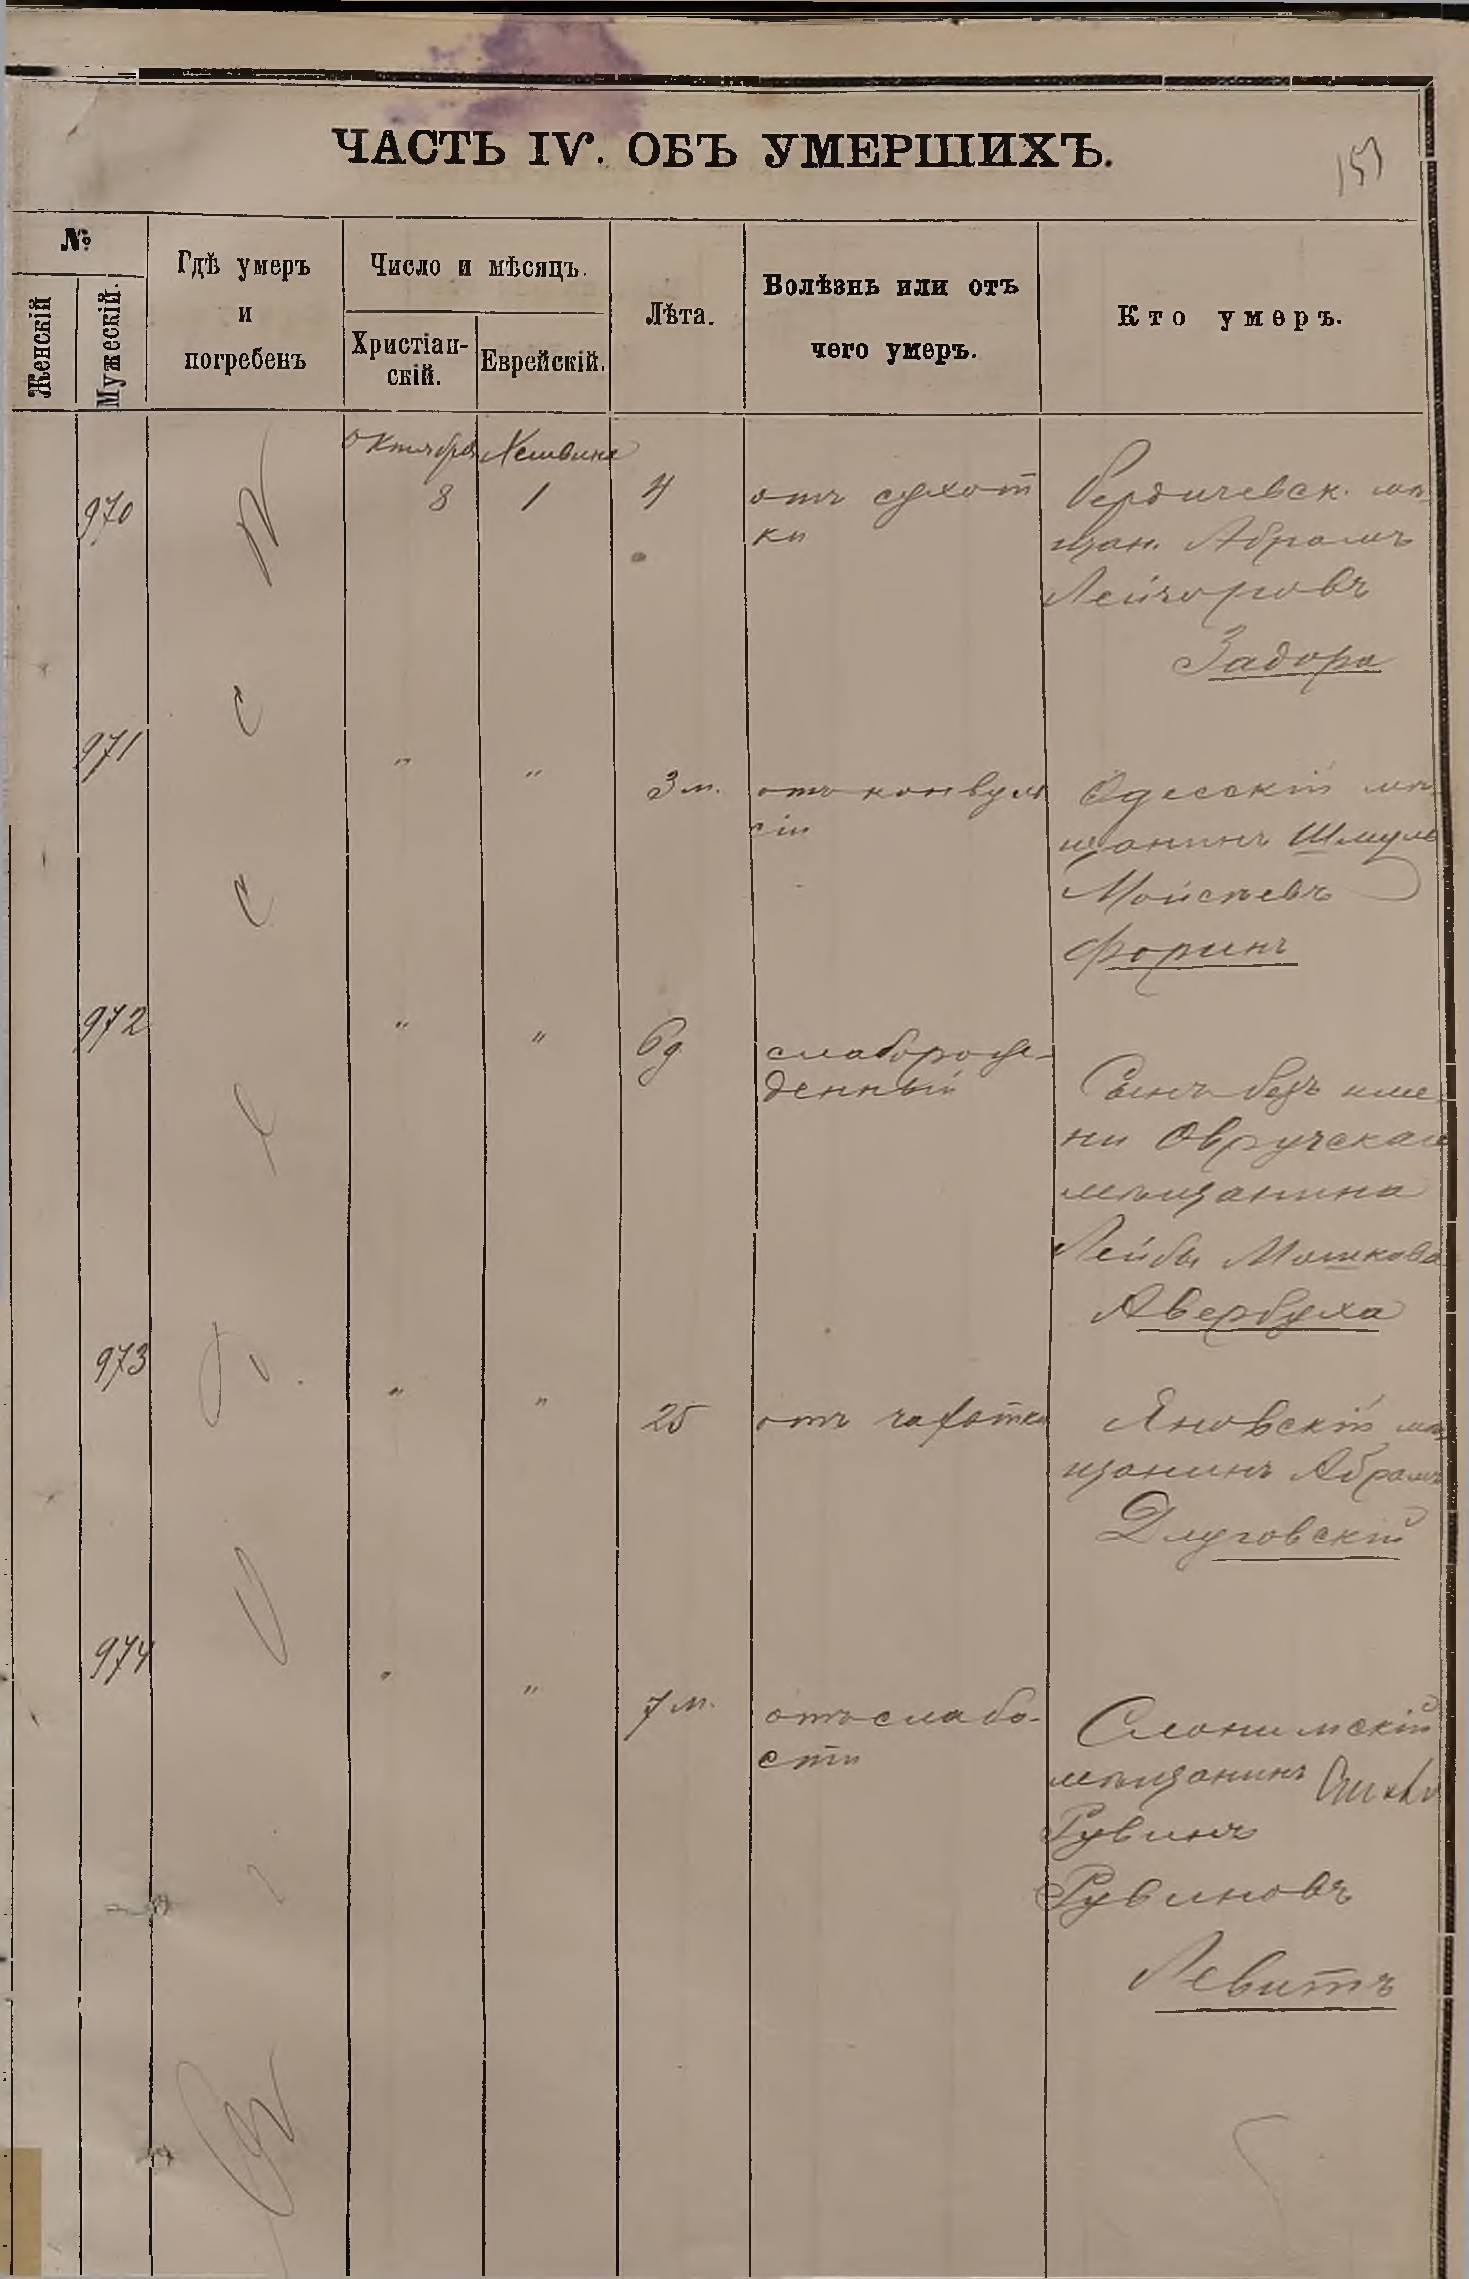 ЧАСТЬ IV. ОБЪ УМЕРШИХЪ.
153
№
Женскій
Мужескій.
Гдѣ умеръ
и
погребенъ
Число и мѣсяцъ.
Христіан-
скій.
Еврейскій.
Лѣта.
Болѣзнь или отъ
чего умеръ.
Кто умеръ.
Октября Хешвина
970 8 1 4 отъ сухот
ки
Бердичевск. мѣ
щан. Абрамъ
Задора
971 " " 3 м. отъ конвуль
сіи
Одесскій мѣ
щанинъ Шмуль
Мойсѣевъ
Форинъ
972 " " 6 д слаборож-
денный
Сынъ безъ име
ни Овручскаго
мѣщанина
Лейбы Мошкова
Авербуха
973 " " 25 отъ чахотки
Яновскій мѣ
щанинъ Абрамъ
Длуговскій
974 " " 7 м. отъ слабо-
сти
Слонимскій
мѣщанинъ
Рувинъ
Рувиновъ
Левитъ